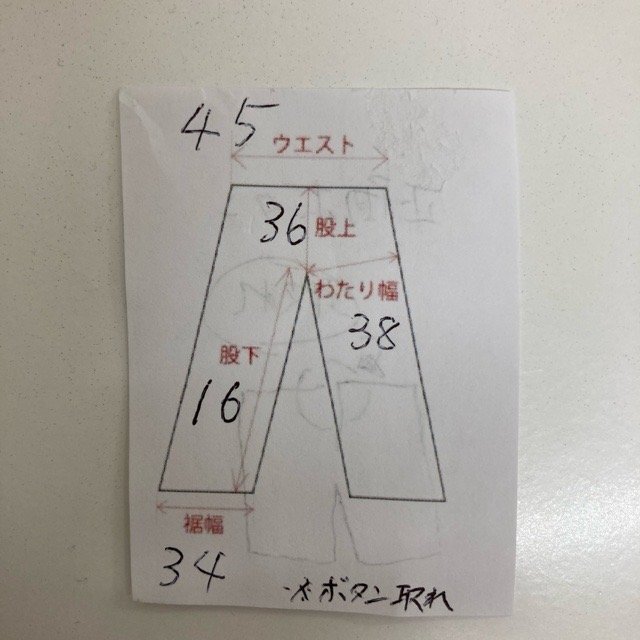 45
ウエスト
36
股上
わたり幅
38
股下
16
裾幅
34
※ボタン取れ